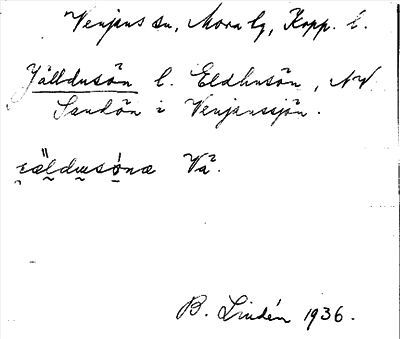 Venjans sn, Mora lg, Kopp. l.
Jälldusön l. Eldhusön, NV
Sandön i Venjanssjön.
Va².
B. Lindén 1936.